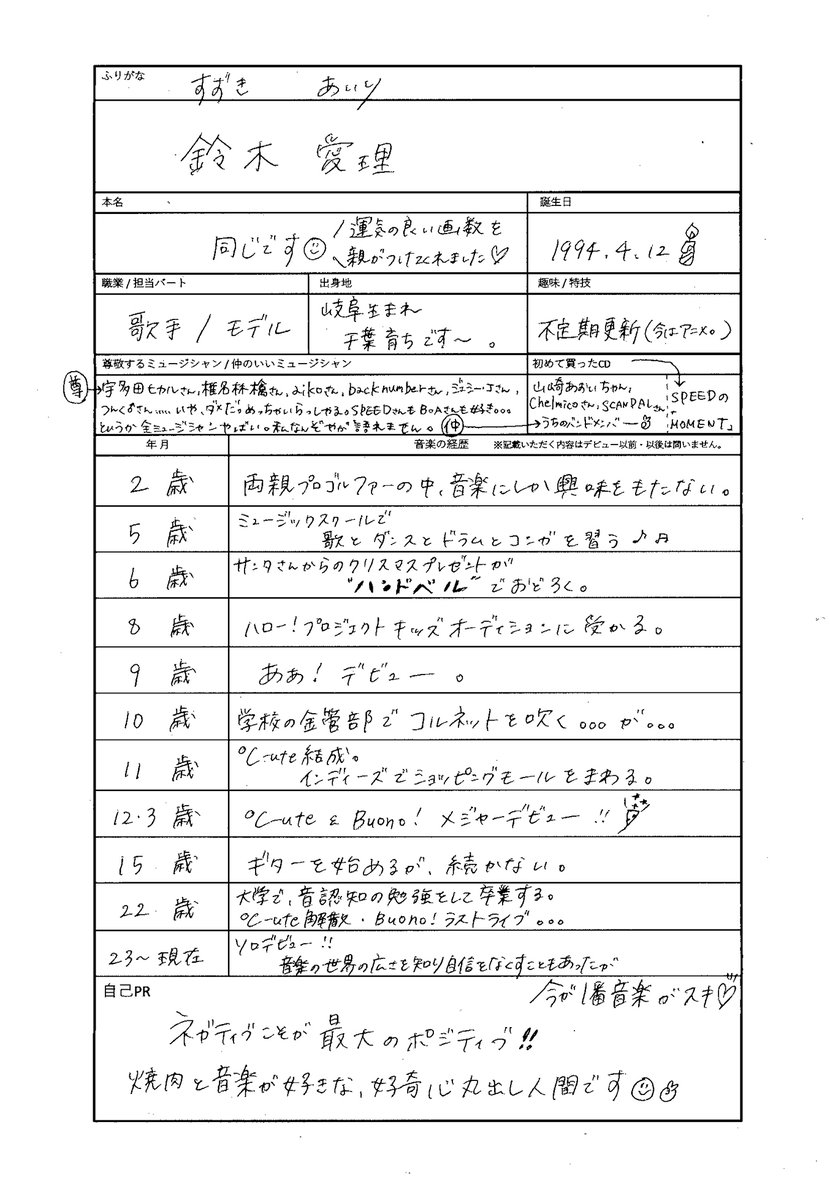 ふりがな
すずき あいり
鈴木 愛理
本名
誕生日
同じです
運気の良い画数を
親がつけてくれました♡
1994.4.12
職業/担当パート
出身地
趣味/特技
歌手/モデル
岐阜生まれ
千葉育ちです〜。
不定期更新(今はアニメ。)
尊敬するミュージシャン/仲のいいミュージシャン
初めて買ったCD
尊→宇多田ヒカルさん,椎名林檎さん,aikoさん,back numberさん,ジューシー・Jさん,
つんく♂さん.....いや、ダメだ。めっちゃいらっしゃる。SPEEDさんもBoAさんも好き。。。
というか全ミュージシャンやばい。私なんぞやが語れません。
仲→
山崎あおいちゃん,
Chelmicoさん,SCANDALさん
うちのバンドメンバー
SPEEDの
「MOMENT」
年月
音楽の経歴 ※記載いただく内容はデビュー以前・以後は問いません。
2歳 両親プロゴルファーの中、音楽にしか興味をもたない。
5歳 ミュージックスクールで
歌とダンスとドラムとコンガを習う♪♫
6歳 サンタさんからのクリスマスプレゼントが
"ハンドベル"でおどろく。
8歳 ハロー!プロジェクトキッズオーディションに受かる。
9歳 あぁ!デビュー。
10歳 学校の金管部でコルネットを吹く。。。が。。。
11歳 ℃-ute結成。
インディーズでショッピングモールをまわる。
12・3歳 ℃-ute & Buono! メジャーデビュー!!
15歳 ギターを始めるが、続かない。
22歳 大学で、音認知の勉強をして卒業する。
℃-ute解散・Buono!ラストライブ。。。
23〜現在 ソロデビュー!!
音楽の世界の広さを知り自信をなくすこともあったが
今が1番音楽がスキ♡
自己PR
ネガティブこそが最大のポジティブ!!
焼肉と音楽が好きな、好奇心丸出し人間です